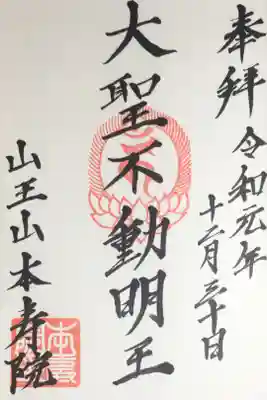 奉拝
令和元年
十二月三十日
大聖不動明王
山王山本寿院